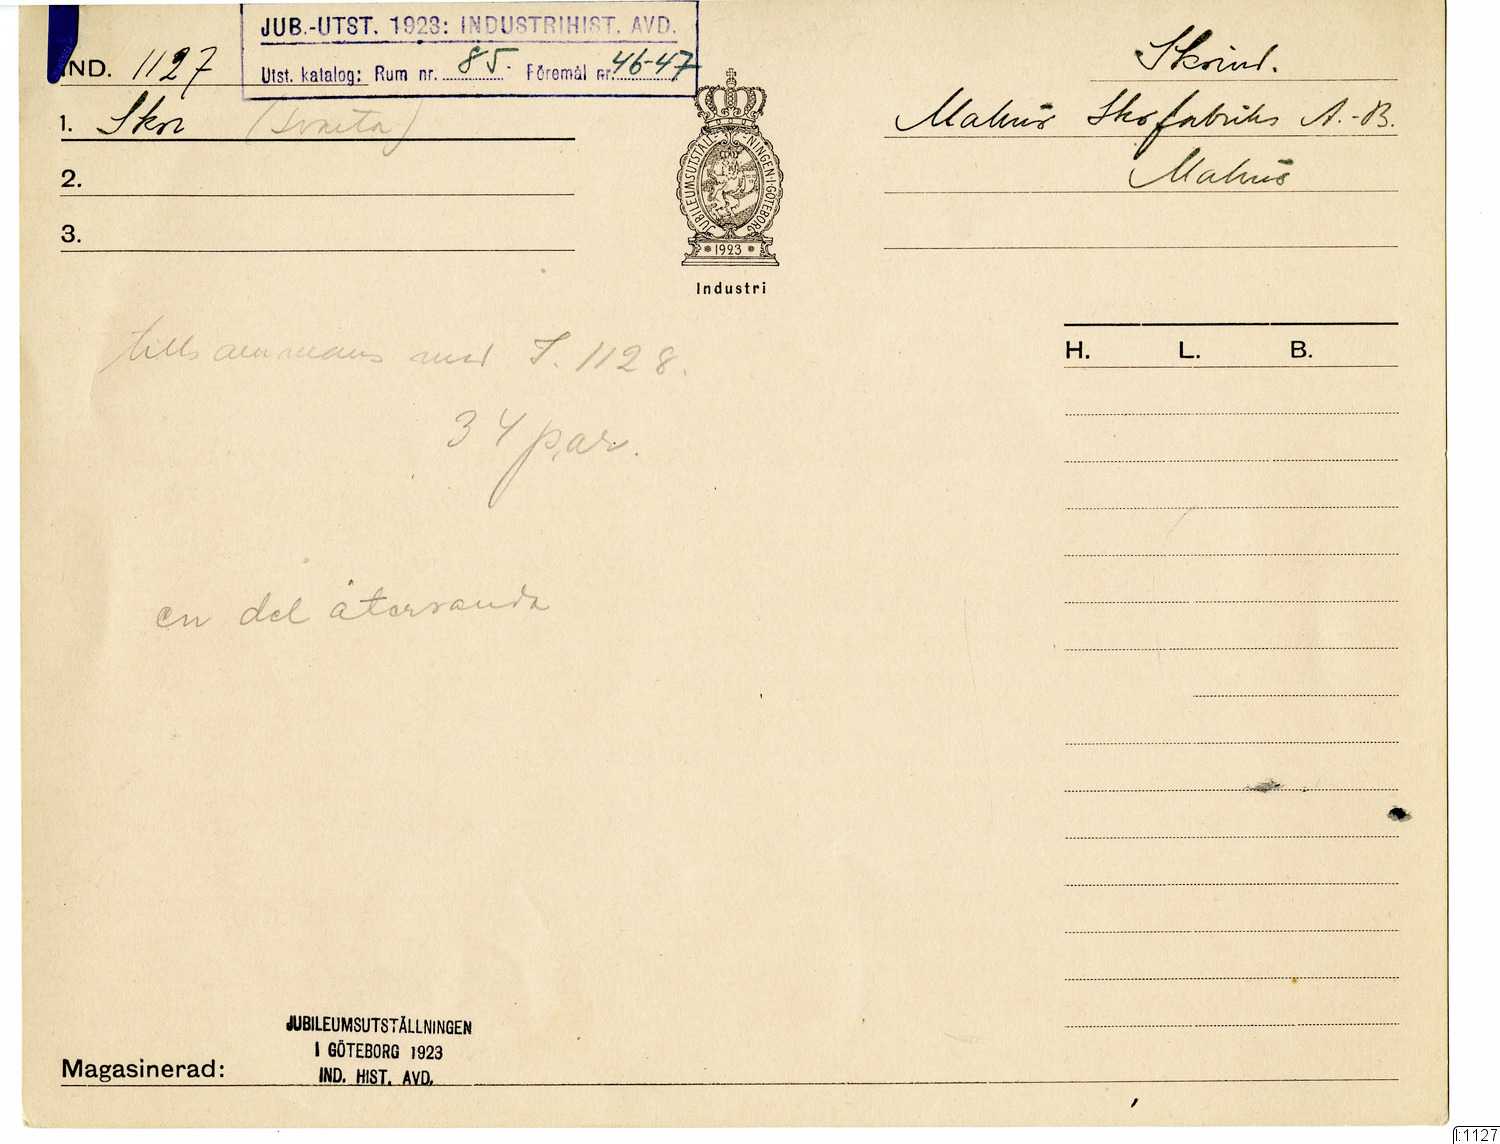 JUB.-UTST. 1923: INDUSTRIHIST. AVD.
Utst. katalog: Rum nr. 85 Föremål nr. 46-47
IND. 1127
1. Skor
2.
3.
JUBILEUMSUTSTÄLLNINGEN·I·GÖTEBORG
1923
Industri
Skoind.
Malmö Skofabriks A.-B.
Malmö
H. L. B.
tillsammans med I. 1128.
34 par.
en del återsända
JUBILEUMSUTSTÄLLNINGEN
I GÖTEBORG 1923
IND. HIST. AVD.
Magasinerad:
I:1127